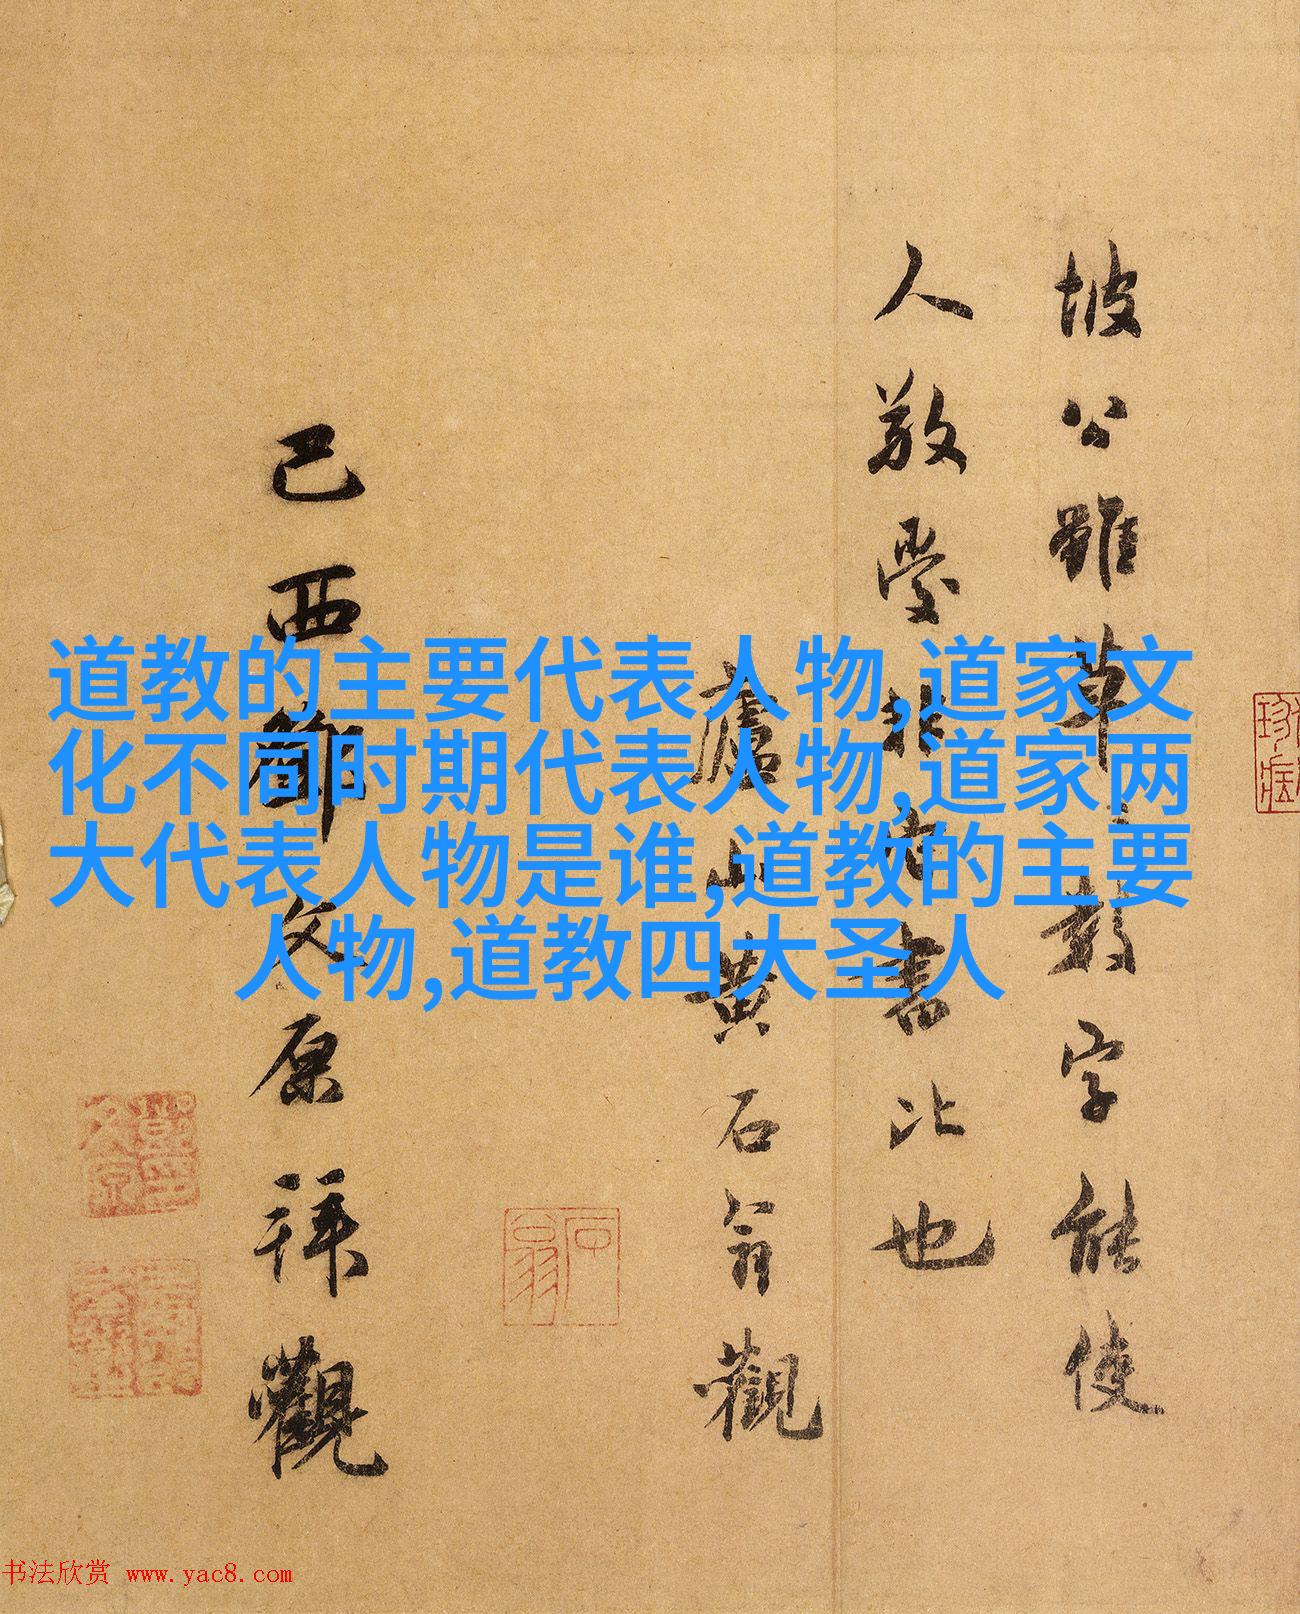 道教的主要代表人物,道家文
化不同时期代表人物,道家两
大代表人物是谁,道教的主要
人物,道教四大圣人
坡公雖草草數字能使
人敬愛非內書比也
廬山黃石翁觀
己酉鄧文原拜觀
石翁
书法欣赏 www.yac8.com